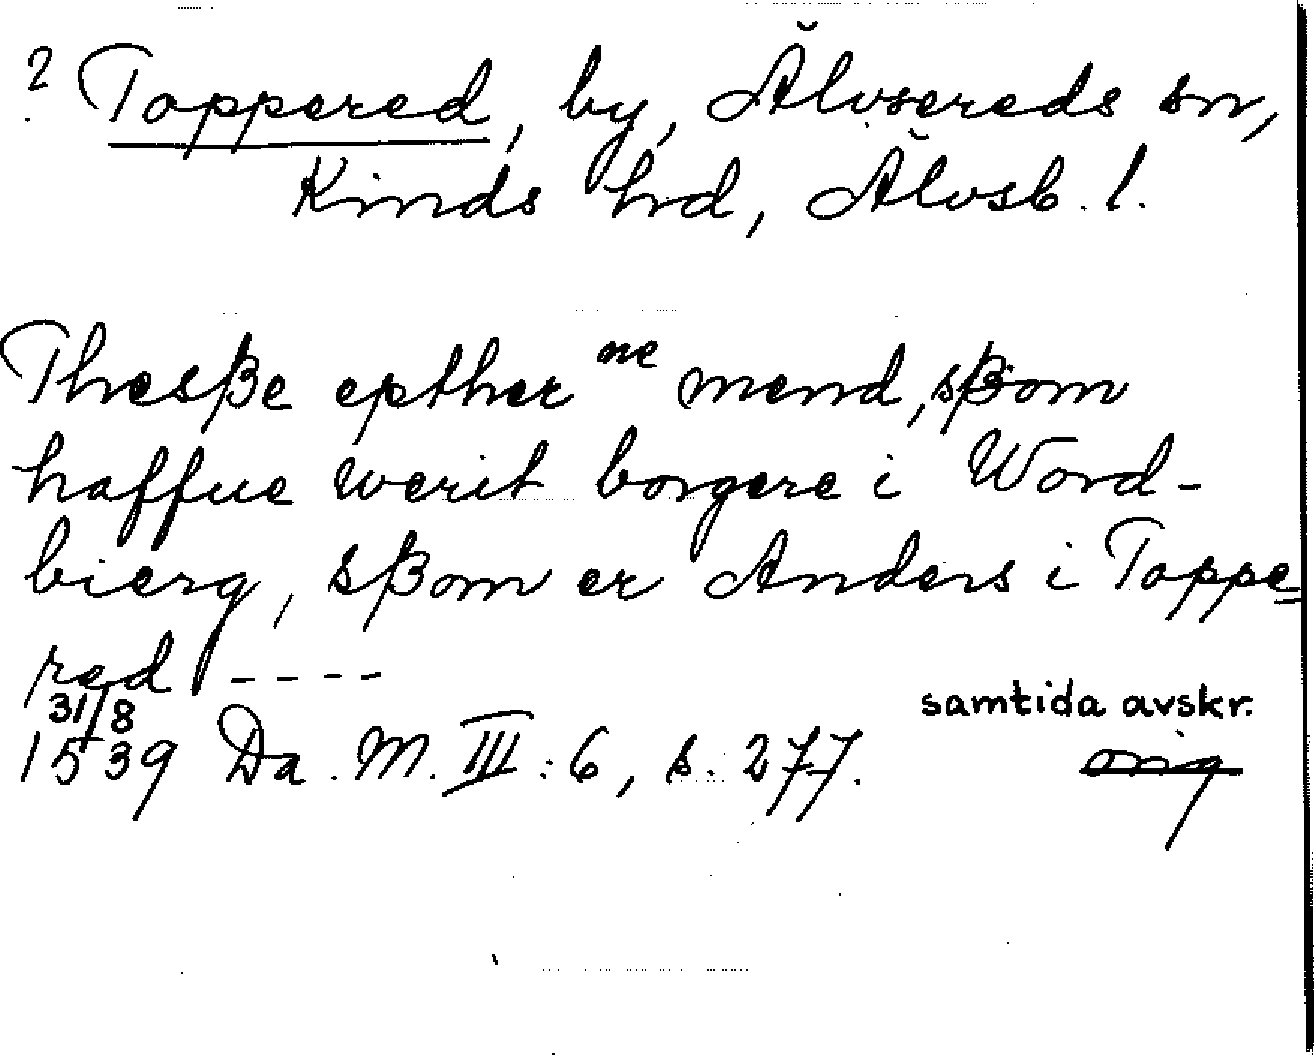 ? Toppered, by, Älvsereds sn,
Kinds hd, Älvsb. l.
Thesße epther ne mend, sßom
haffue werit borgere i Word-
bierg, sßom er Anders i Toppe=
red ----
31/8
1539 Da. M. III: 6, s. 277.
samtida avskr.
orig